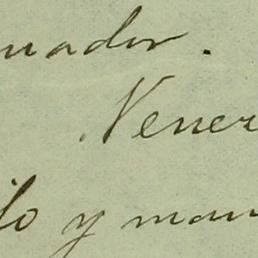 uador.
Venez
ilo y man